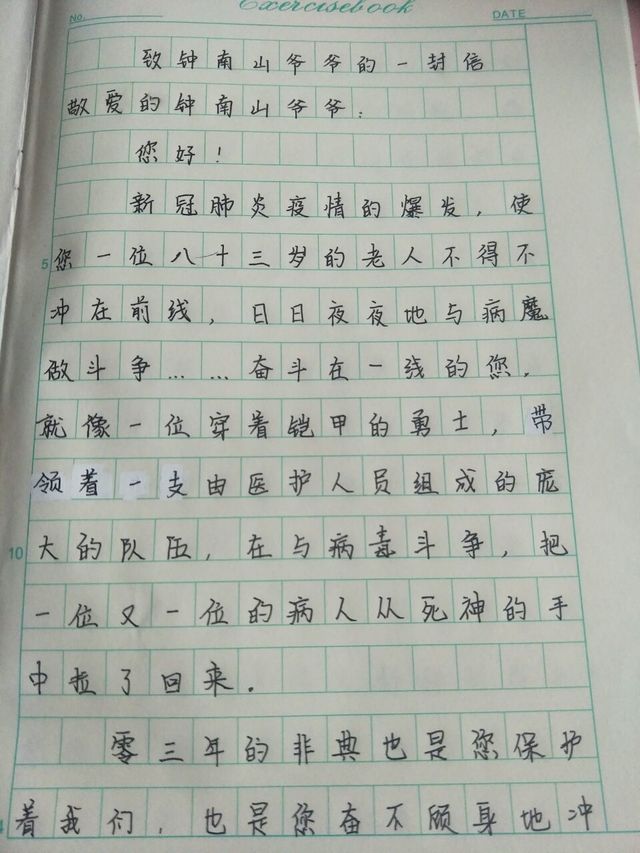 Exercisebook
No.
DATE
致钟南山爷爷的一封信
敬爱的钟南山爷爷：
您好！
新冠肺炎疫情的爆发，使
5
您一位八十三岁的老人不得不
冲在前线，日日夜夜地与病魔
做斗争……奋斗在一线的您，
就像一位穿着铠甲的勇士，带
领着一支由医护人员组成的庞
10
大的队伍，在与病毒斗争，把
一位又一位的病人从死神的手
中拉了回来.
零三年的非典也是您保护
着我们，也是您奋不顾身地冲